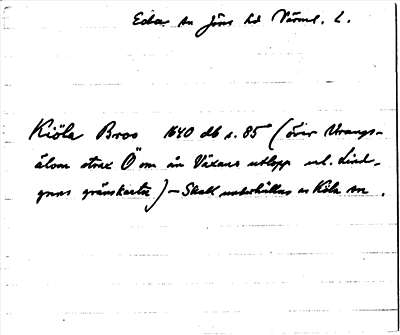 Eda sn Jöns hd Värml. L.
Kiöla Broo 1640 db s. 85 (över Vrangs-
älven strax Ö om ån Växans utlopp enl. Lind-
grens gränskarta) – Skall underhållas av Köla sn.